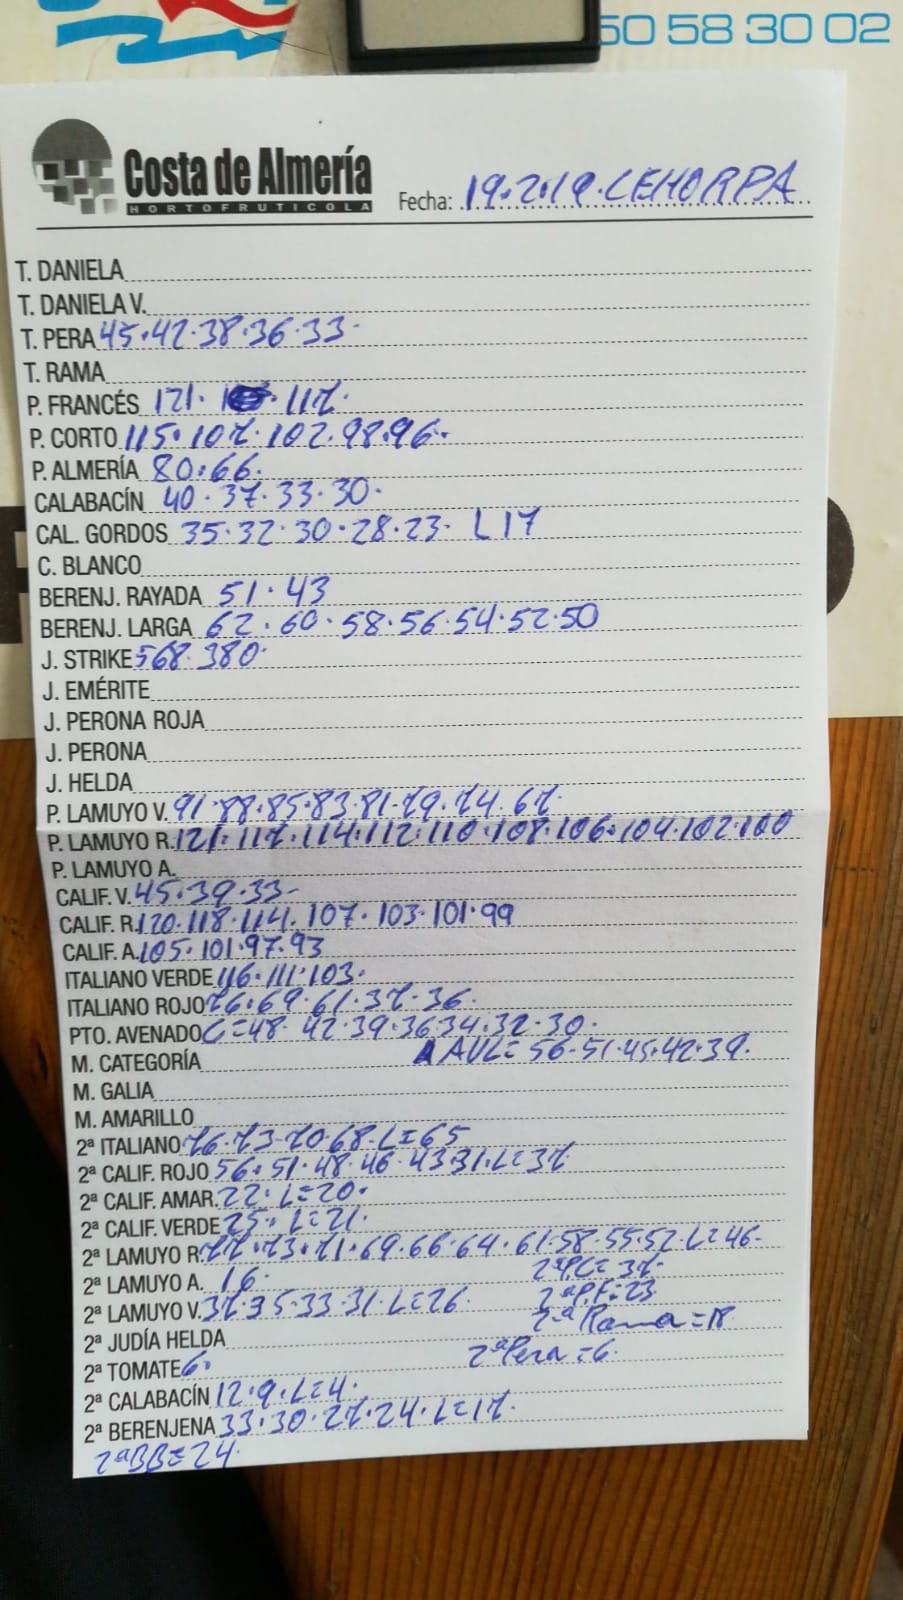 50 58 30 02
Costa de Almería
HORTOFRUTICOLA
Fecha: 19.2.19.CEHORPA
T. DANIELA
T. DANIELA V.
T. PERA 45.42.38.36.33.
T. RAMA
P. FRANCÉS 121. 117.
P. CORTO 115.107.102.98.96.
P. ALMERÍA 80.66.
CALABACÍN 40.37.33.30.
CAL. GORDOS 35.32.30.28.23. L17
C. BLANCO
BERENJ. RAYADA 51.43
BERENJ. LARGA 62.60.58.56.54.52.50
J. STRIKE 568.380.
J. EMÉRITE
J. PERONA ROJA
J. PERONA
J. HELDA
P. LAMUYO V. 91.88.85.83.81.79.74.67.
P. LAMUYO R. 121.117.114.112.110.108.106.104.102.100
P. LAMUYO A.
CALIF. V. 45.39.33.
CALIF. R. 120.118.114.107.103.101.99
CALIF. A. 105.101.97.93
ITALIANO VERDE 116.111.103.
ITALIANO ROJO 76.69.61.37.36.
PTO. AVENADO C=48.42.39.36.34.32.30.
M. CATEGORÍA AVL= 56.51.45.42.39.
M. GALIA
M. AMARILLO
2ª ITALIANO 76.73.70.68.L=65
2ª CALIF. ROJO 56.51.48.46.43.31.L=37
2ª CALIF. AMAR. 22.L=20.
2ª CALIF. VERDE 25.L=21.
2ª LAMUYO R. 77.73.71.69.66.64.61.58.55.52.L=46.
2ª LAMUYO A. 16. 2ªPC=37.
2ªP.F=23
2ª LAMUYO V. 37.35.33.31.L=26
2ª Rama=18
2ª JUDÍA HELDA
2ªPera=6.
2ª TOMATE 6.
2ª CALABACÍN 12.9.L=4.
2ª BERENJENA 33.30.27.24.L=17.
2ªBB=24.